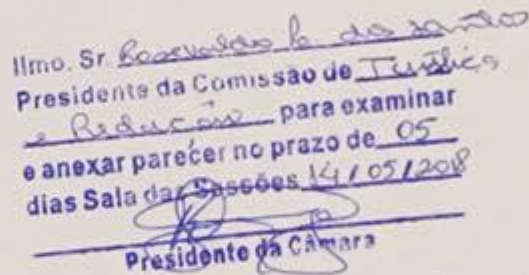 Ilmo. Sr. da santos
Presidente da Comissão de Justiça
e Redação para examinar
e anexar parecer no prazo de 05
dias Sala das Sessões 14/05/2018
Presidente da Câmara